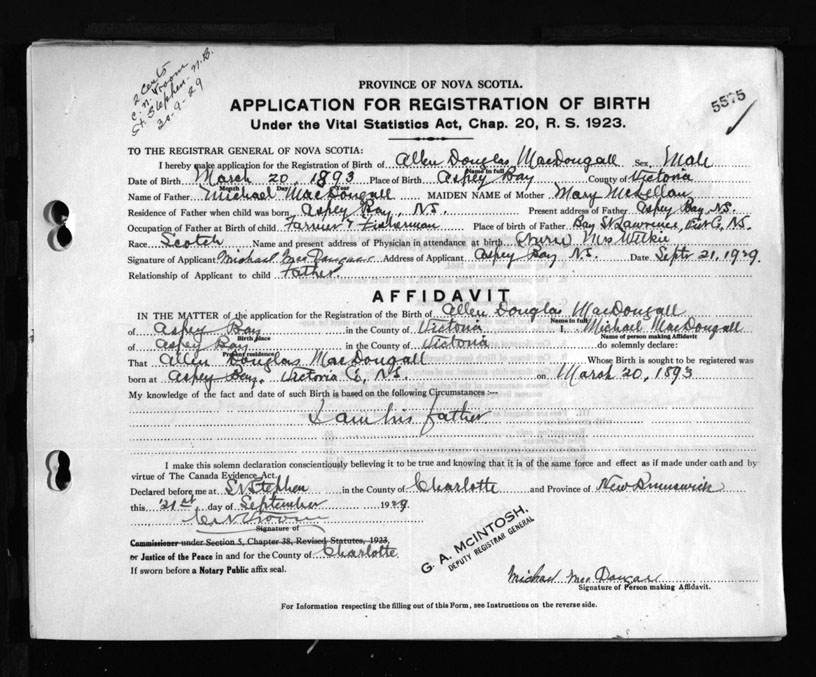 2 Cents
C. N. Vroom
St. Stephen - N.B.
30-9-29
5575
PROVINCE OF NOVA SCOTIA.
APPLICATION FOR REGISTRATION OF BIRTH
Under the Vital Statistics Act, Chap. 20, R. S. 1923.
TO THE REGISTRAR GENERAL OF NOVA SCOTIA:
I hereby make application for the Registration of Birth of Allen Douglas MacDougall Sex, Male
Name in full
Date of Birth March 20, 1893 Place of Birth Aspey Bay County of Victoria
Month Day Year
Name of Father Michael MacDougall MAIDEN NAME of Mother Mary McLellan
Residence of Father when child was born, Aspey Bay, N.S. Present address of Father Aspey Bay N.S.
Occupation of Father at Birth of child Farmer & Fisherman Place of birth of Father Bay St Lawrence, Vict Co, N.S.
Race Scotch Name and present address of Physician in attendance at birth (Nurse) Mrs Wilkie
Signature of Applicant Michael MacDougall Address of Applicant Aspey Bay N.S. Date Septr 21, 1929.
Relationship of Applicant to child Father.
AFFIDAVIT
IN THE MATTER of the application for the Registration of the Birth of Allen Douglas MacDougall
Name in full
of Aspey Bay in the County of Victoria I, Michael MacDougall
Birth place Name of person making Affidavit
of Aspey Bay in the County of Victoria do solemnly declare:
Present residence
That Allen Douglas MacDougall Whose Birth is sought to be registered was
born at Aspey Bay, Victoria Co, N.S. on March 20, 1893
My knowledge of the fact and date of such Birth is based on the following Circumstances :—
I am his father
I make this solemn declaration conscientiously believing it to be true and knowing that it is of the same force and effect as if made under oath and by
virtue of The Canada Evidence Act.
Declared before me at St Stephen in the County of Charlotte and Province of New Brunswick
this 21st day of September 1929.
C. N. Vroom
Signature of
Commissioner under Section 5, Chapter 38, Revised Statutes, 1923,
or Justice of the Peace in and for the County of Charlotte
If sworn before a Notary Public affix seal.
G. A. MCINTOSH,
DEPUTY REGISTRAR GENERAL
Michael MacDougall
Signature of Person making Affidavit.
For Information respecting the filling out of this Form, see Instructions on the reverse side.